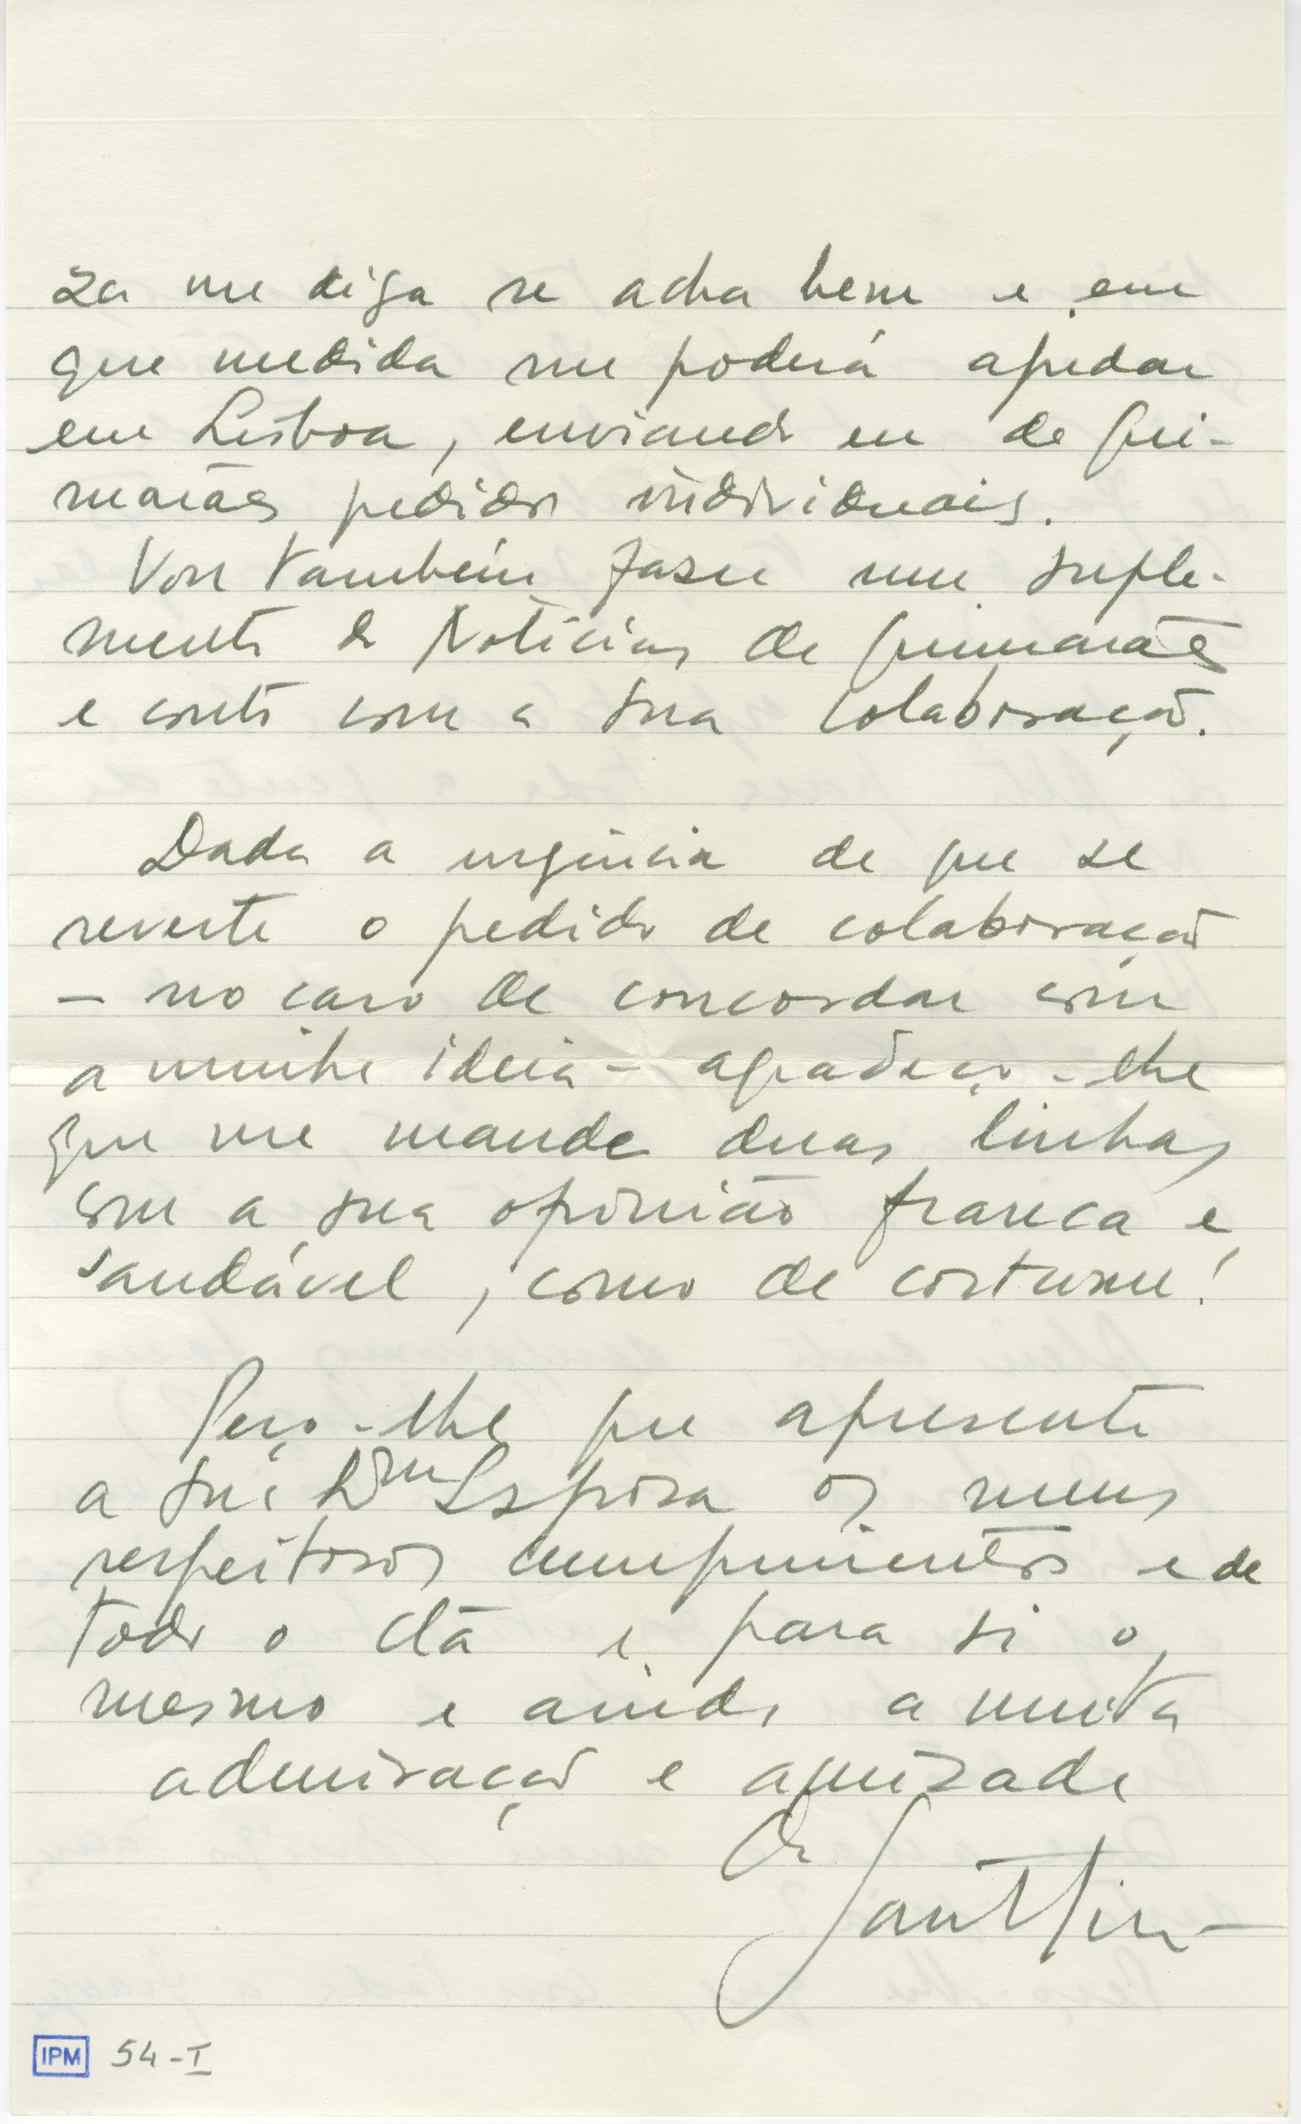 za me diga se acha bem e em
que medida me poderá ajudar
em Lisboa, enviando eu de Gui-
marães pedidos individuais.
Vou também fazer um suple-
mento do Notícias de Guimarães
e conto com a sua colaboração.
Dada a urgência de que se
reveste o pedido de colaboração
— no caso de concordar com
a minha ideia — agradeço-lhe
que me mande duas linhas
com a sua opinião franca e
saudável, como de costume!
Peço-lhe que apresente
a sua Esposa os meus
respeitosos cumprimentos e de
todo o clã e para si o
mesmo e ainda a muita
admiração e amizade
IPM 54-I